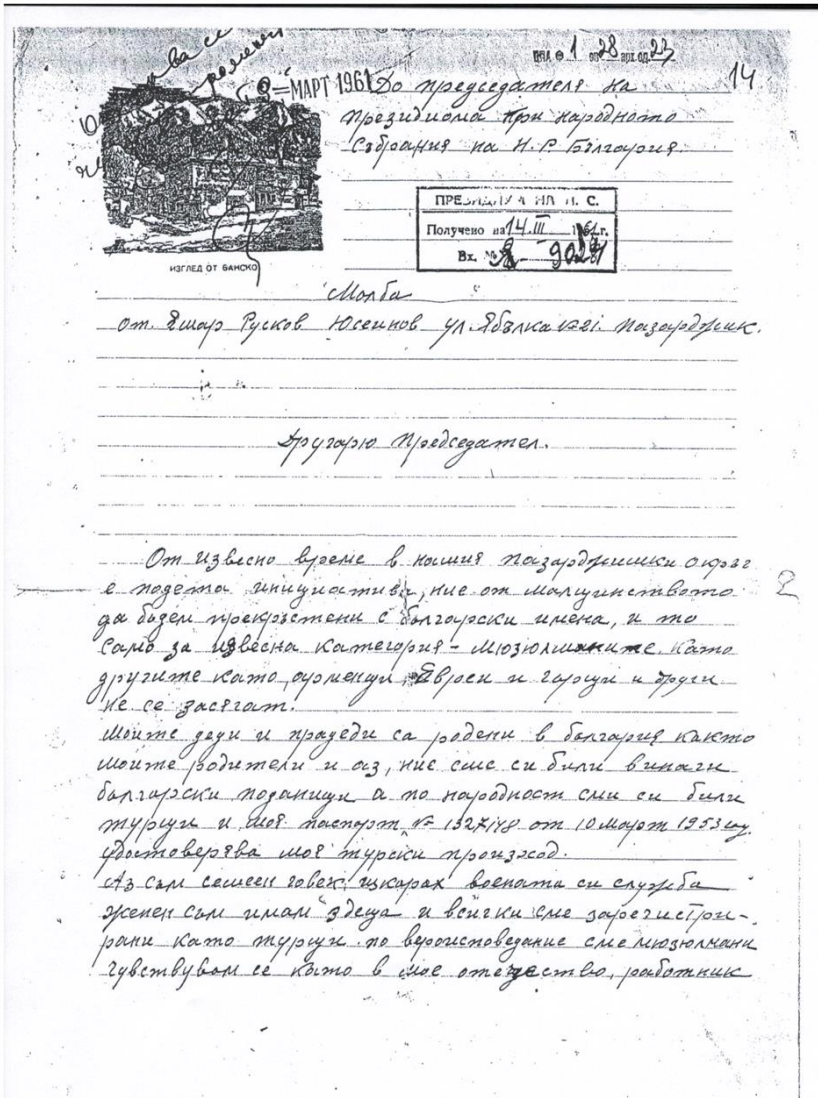 ЦПА Ф 1 оп 28 арх.од. 23
14
МАРТ 1961
До председателя на
президиома при народното
Събрания на Н. Р. България.
ПРЕЗИДИУМ НА Н. С.
Получено на 14. III 1961 г.
Вх. №
ИЗГЛЕД ОТ БАНСКО
Молба
от. Яшар Русков Юсеинов ул. Ябълка №21. Пазарджик.
Другарю Председател.
От извесно време в нашия пазарджишки окръг
е подета инициатива, ние от малцинството
да бъдем прекръстени с български имена, и то
само за извесна категория - мюзюлманите. като
другите като, арменци, Евреи и гърци и други
не се засягат.
Моите деди и прадеди са родени в България както
моите родители и аз, ние сме си били винаги
български поданици а по народност сми си били
турци и моя паспорт № от 10 март 1953 год.
удостоверява моя турски произход.
Аз съм семеен човек, изкарах воената си служба
женен съм имам 3 деца и всички сме зарегистри-
рани като турци. по вероисповедание сме мюзюлмани
чувствувам се като в мое отечество, работник